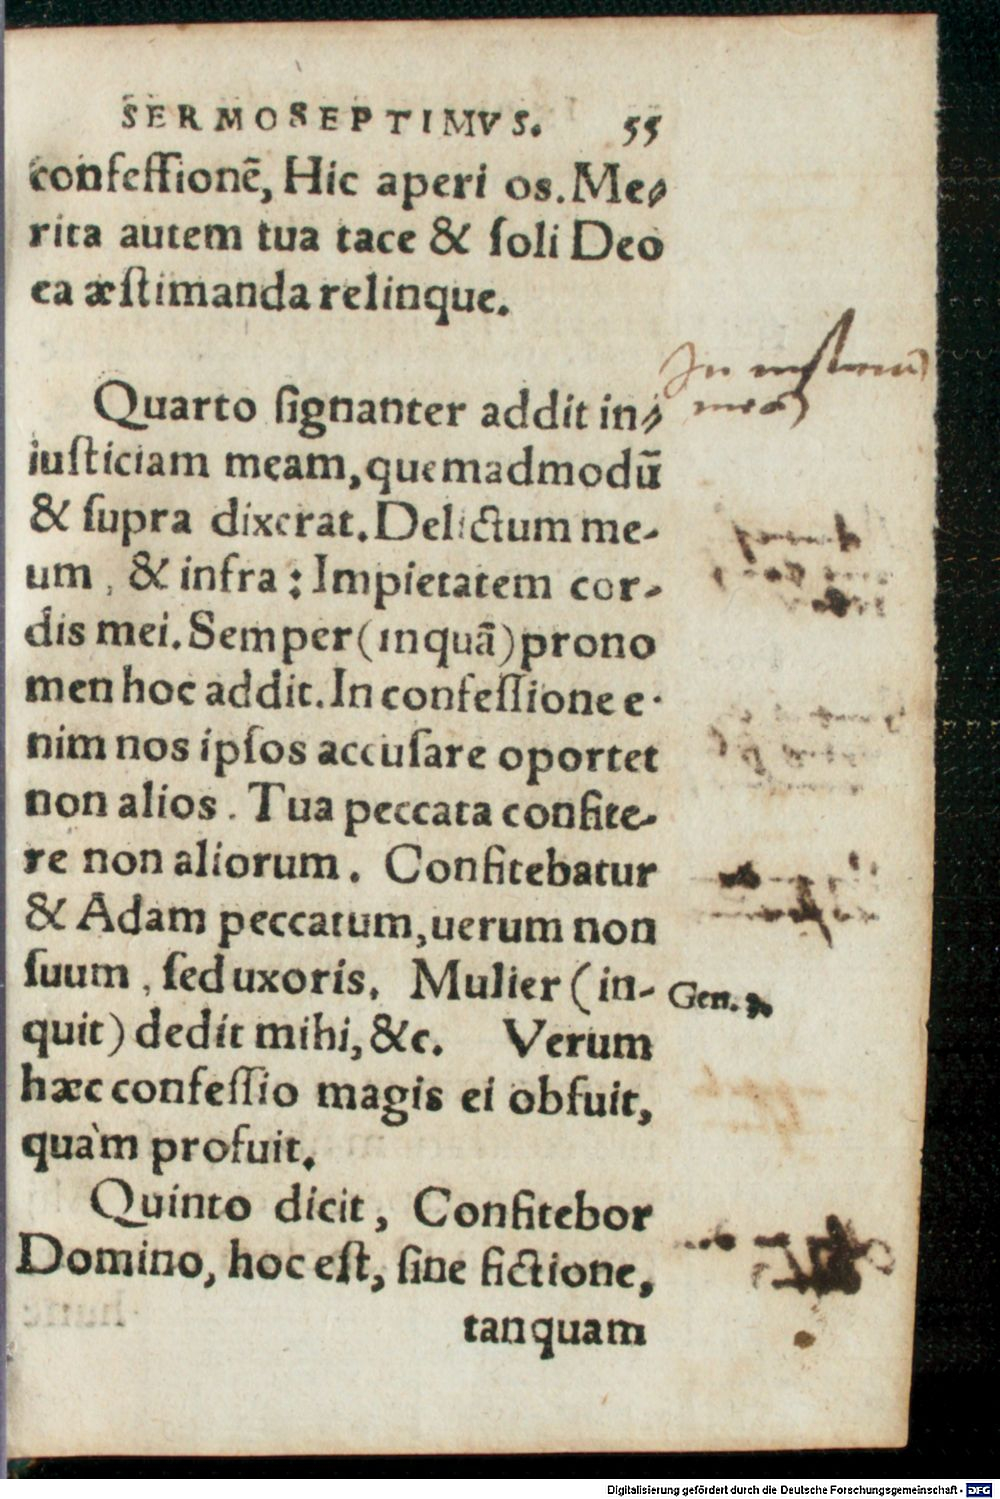 SERMO SEPTIMVS. 55
confessionē, Hic aperi os. Me-
rita autem tua tace & soli Deo
ea æstimanda relinque.
Quarto signanter addit in-
iusticiam meam, quemadmodū
& supra dixerat. Delictum me-
um, & infra: Impietatem cor-
dis mei. Semper (inquā) prono
men hoc addit. In confessione e-
nim nos ipsos accusare oportet
non alios. Tua peccata confite-
re non aliorum. Confitebatur
& Adam peccatum, uerum non
suum, sed uxoris. Mulier (in-
Gen. 3.
quit) dedit mihi, &c. Verum
hæc confessio magis ei obfuit,
quàm profuit.
Quinto dicit, Confitebor
Domino, hoc est, sine fictione,
tanquam
Digitalisierung gefördert durch die Deutsche Forschungsgemeinschaft - DFG